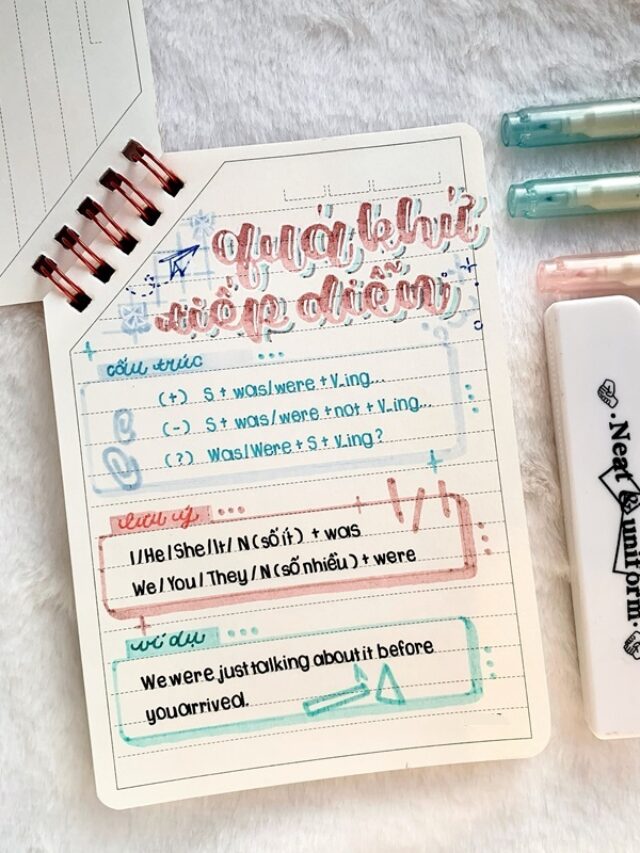 quá khứ
tiếp diễn
cấu trúc
(+) S + was/were + V_ing...
(-) S + was/were + not + V_ing...
(?) Was/Were + S + V_ing?
lưu ý
I/He/She/It/N (số ít) + was
We/You/They/N (số nhiều) + were
ví dụ
We were just talking about it before
you arrived.
Neat & uniform